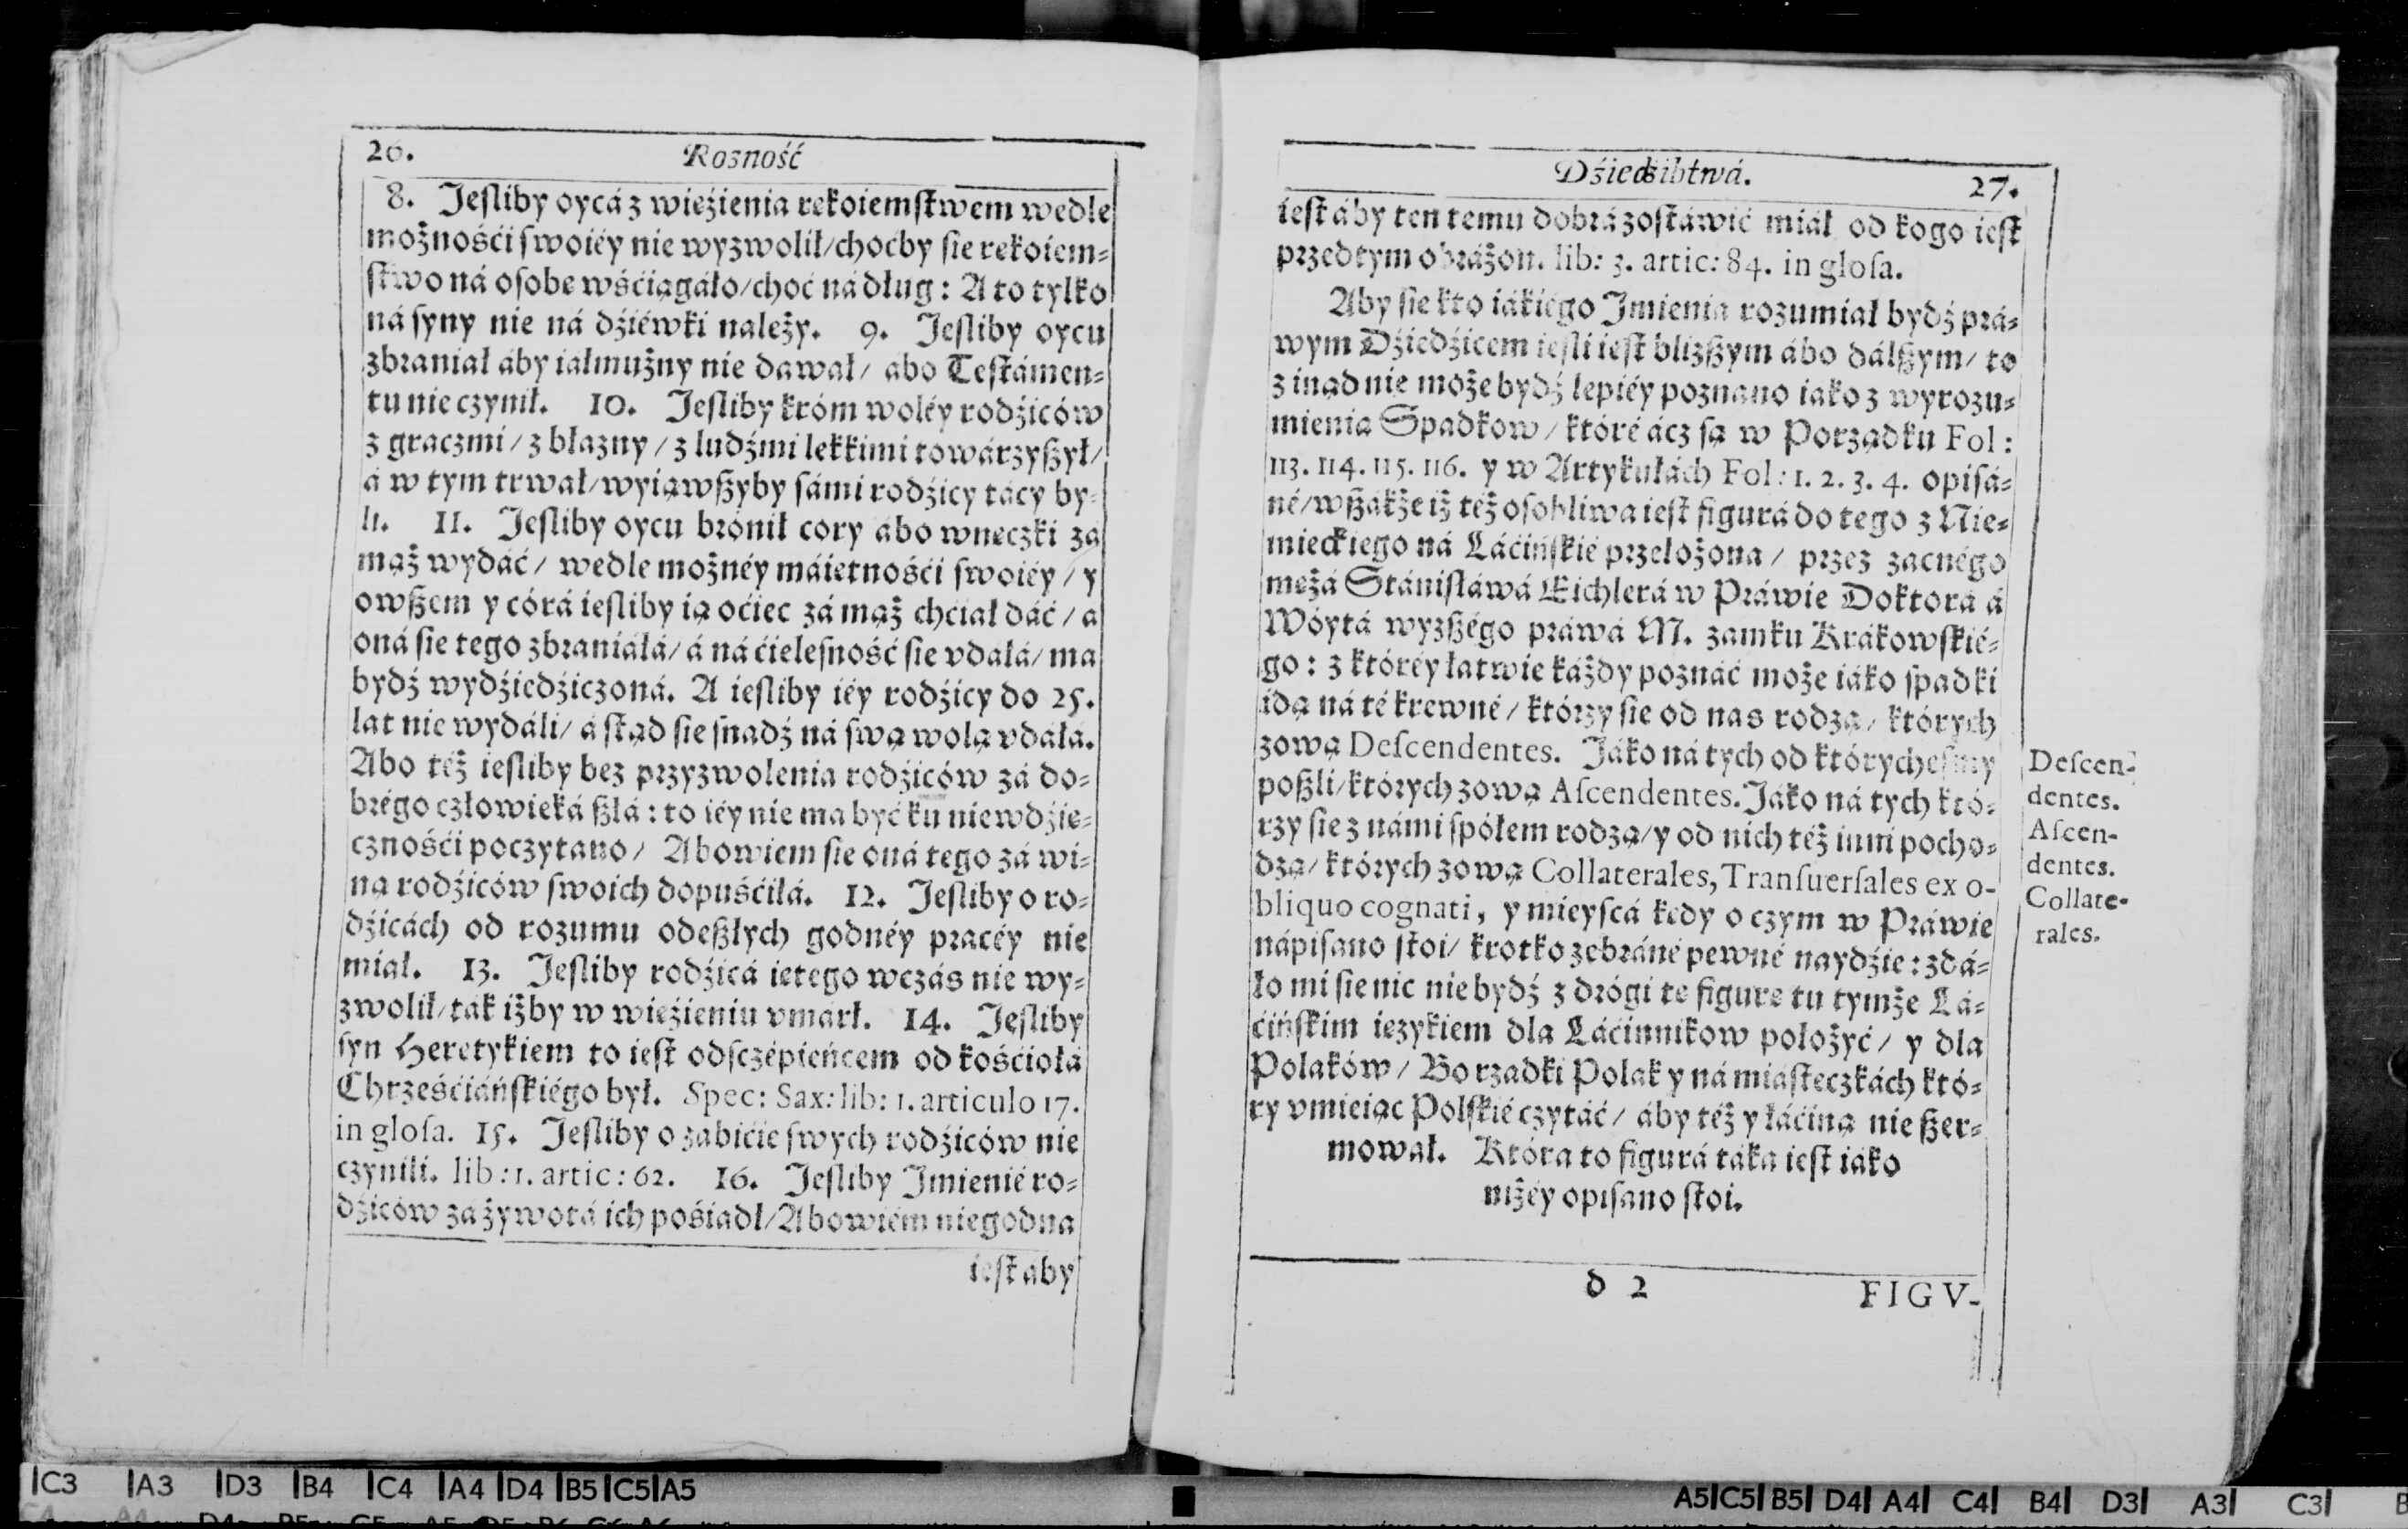 26. Rozność
8. Jeſliby oycá z wieźienia rekoiemſtwem wedle
możnośći ſwoiéy nie wyzwolił/choćby ſie rekoiem=
ſtwo ná oſobe wśćiągáło/choć ná dług: A to tylko
ná ſyny nie ná dźiéwki należy. 9. Jeſliby oycu
zbraniał áby iáłmużny nie dawał/ abo Teſtámen=
tu nie czynił. 10. Jeſliby króm woléy rodźiców
z graczmi/ z błazny/ z ludźmi lekkimi towárzyßył/
á w tym trwał/wyiąwßyby ſámi rodźicy tácy by=
li. 11. Jeſliby oycu bronił cory ábo wneczki za
mąż wydáć/ wedle możnéy máietnośći ſwoiéy/ y
owßem y córá ieſliby ią oćiec zá mąż chćiał dáć/ a
oná ſie tego zbraniáłá/ á ná ćieleſność ſie vdáłá/ ma
bydź wydźiedźiczoná. A ieſliby iéy rodźicy do 25.
lat nie wydáli/ á ſtąd ſie ſnadź ná ſwą wolą vdáłá.
Abo też ieſliby bez przyzwolenia rodźiców zá do=
brégo człowieká ßłá: to iéy nie ma być ku niewdźie=
cznośći poczytano/ Abowiem ſie oná tego zá wi=
ną rodźiców ſwoich dopuśćiłá. 12. Jeſliby o ro=
dźicách od rozumu odeßłych godnéy pracéy nie
miał. 13. Jeſliby rodźicá ietego wczás nie wy=
zwolił/ták iżby w wieźieniu vmárł. 14. Jeſliby
ſyn Heretykiem to ieſt odſczépieńcem od kośćiołá
Chrześćiáńſkiégo był. Spec: Sax: lib: 1. articulo 17.
in gloſa. 15. Jeſliby o zabićie ſwych rodźiców nie
czynili. lib: 1. artic: 62. 16. Jeſliby Jmienié ro=
dźiców zá żywotá ich pośiadł/Abowiém niegodna
ieſt aby
Dźiedźibtwá. 27.
ieſt áby ten temu dobrá zoſtáwić miał od kogo ieſt
przedtym obrážon. lib: 3. artic: 84. in gloſa.
Aby ſie kto iákiégo Jmienia rozumiał bydź prá=
wym Dźiedźicem ieſli ieſt bliżßym ábo dálßym/ to
z inąd nie może bydź lepiéy poznano iako z wyrozu=
mienia Spadkow/ które ácz ſą w Porządku Fol:
113. 114. 115. 116. y w Artykułách Fol: 1. 2. 3. 4. opiſá=
né/wßákże iż też oſobliwa ieſt figurá do tego z Nie=
mieckiego ná Łáćińſkié przełożona/ przez zacnégo
mężá Stániſłáwá Eichlerá w Práwie Doktorá á
Wóytá wyzßégo práwá M. zamku Krákowſkié=
go: z któréy łatwie káżdy poznáć może iáko ſpadki
idą ná té krewné/ którzy ſie od nas rodzą/ których
zową Deſcendentes. Jáko ná tych od którycheſmy
poßli/których zową Aſcendentes. Jáko ná tych któ=
rzy ſie z námi ſpółem rodzą/y od nich też inni pocho=
dzą/ których zową Collaterales, Tranſuerſales ex o-
bliquo cognati, y mieyſcá kedy o czym w Práwie
nápiſano ſtoi/ krotko zebráné pewné naydźie: zdá=
ło mi ſie nic nie bydź z drógi te figure tu tymże Łá=
ćińſkim iezykiem dla Łáćinnikow położyć/ y dla
Polaków/ Bo rzadki Polak y ná miáſteczkách któ=
ry vmieiąc Polſkié czytáć/ áby też y łáćiną nie ßer=
mował. Która to figurá táka ieſt iáko
niżéy opiſano ſtoi.
Deſcen-
dentes.
Aſcen-
dentes.
Collate-
rales.
d 2 FIGV-
C3 A3 D3 B4 C4 A4 D4 B5 C5 A5
A5 C5 B5 D4 A4 C4 B4 D3 A3 C3